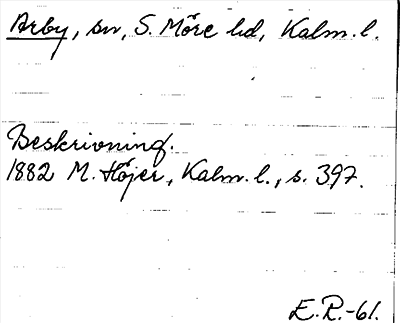 Arby, sn, S. Möre hd, Kalm. l.
Beskrivning.
1882 M. Höjer, Kalm. l., s. 397.
E. R.-61.